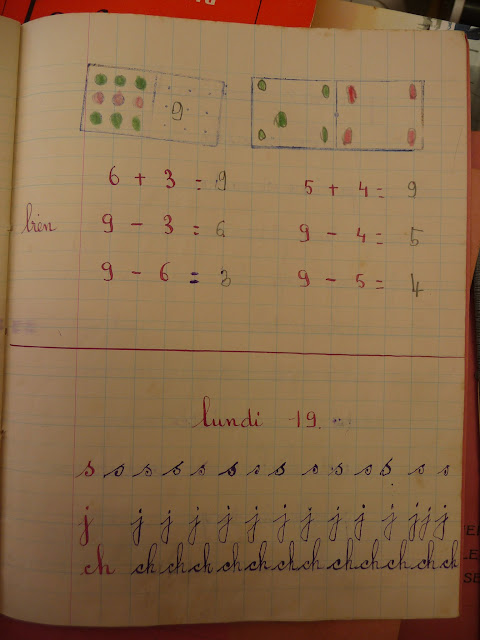 9
6 + 3 = 9 5 + 4 = 9
bien 9 - 3 = 6 9 - 4 = 5
9 - 6 = 3 9 - 5 = 4
lundi 19.
s s s s s s s s s s s s s s
j j j j j j j j j j j j j j
ch ch ch ch ch ch ch ch ch ch ch ch ch